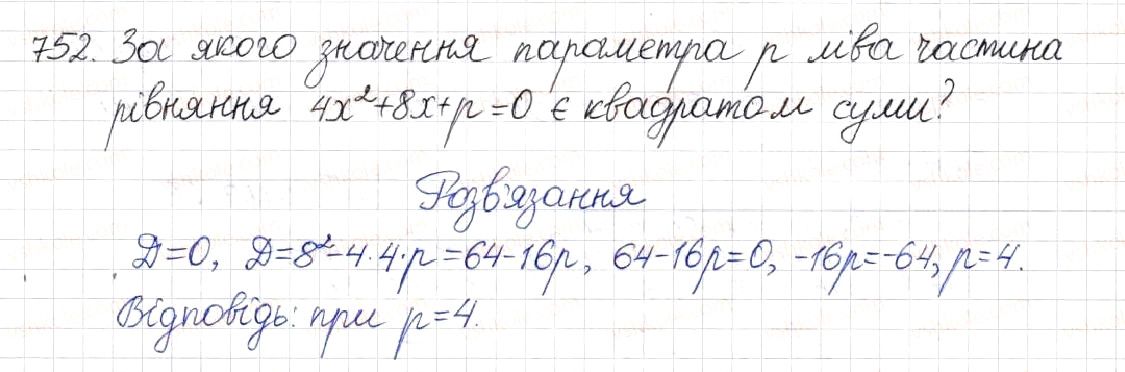 752. За якого значення параметра p ліва частина
рівняння 4x²+8x+p=0 є квадратом суми?
Розв'язання
Д=0, Д=8²-4·4·p=64-16p, 64-16p=0, -16p=-64, p=4.
Відповідь: при p=4.